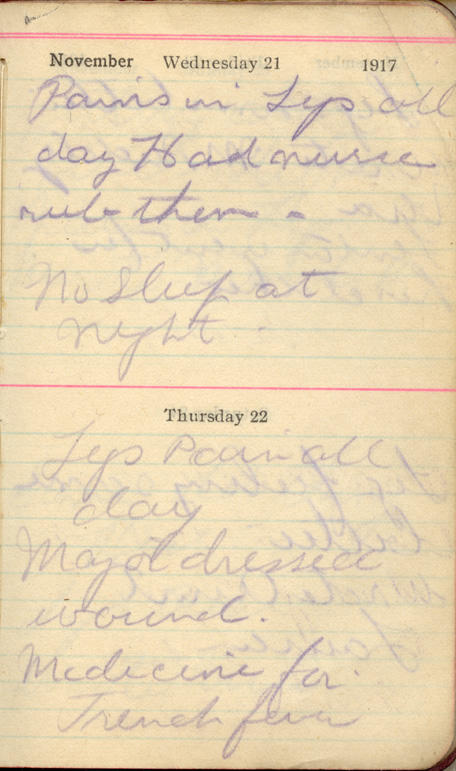 November Wednesday 21 1917
Pains in Legs all
day Had nurse
rub them -
No Sleep at
night.
Thursday 22
Legs Pain all
day
Major dressed
wound.
Medicine for
Trench fever